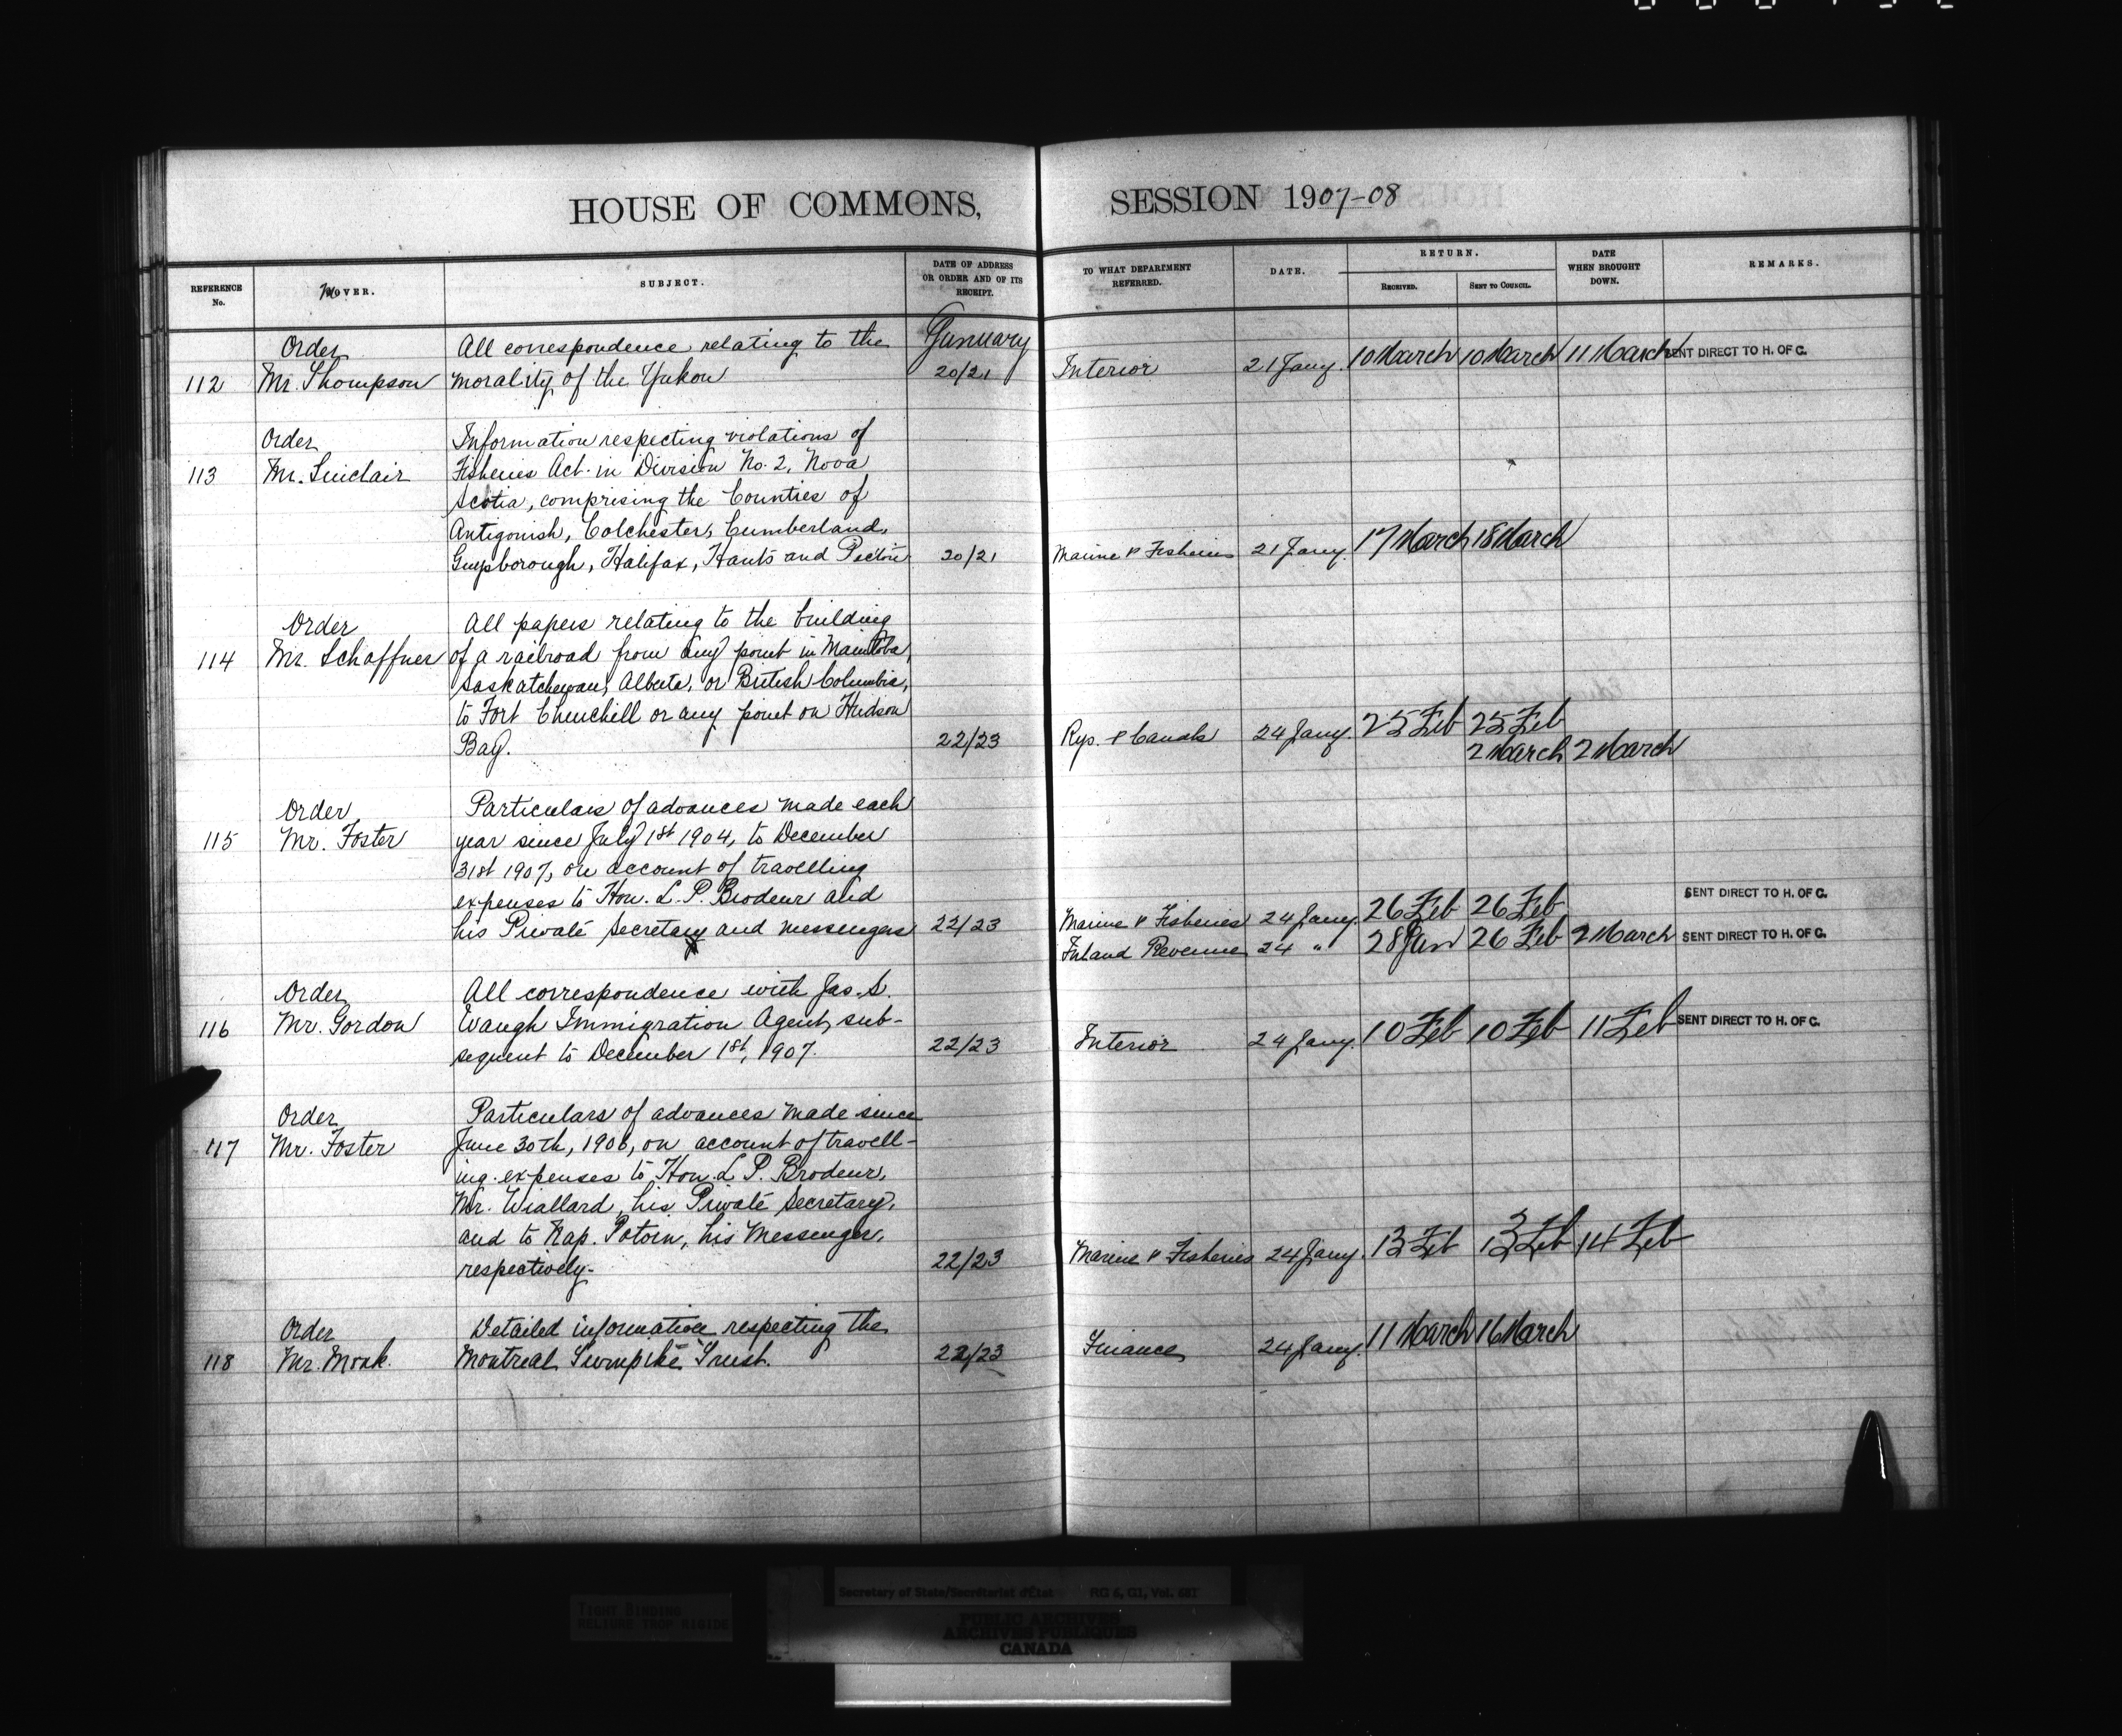 HOUSE OF COMMONS, SESSION 1907-08
REFERENCE No.
MOVER.
SUBJECT.
DATE OF ADDRESS OR ORDER AND OF ITS RECEIPT.
TO WHAT DEPARTMENT REFERRED.
DATE.
RETURN.
RECEIVED.
SENT TO COUNCIL.
DATE WHEN BROUGHT DOWN.
REMARKS.
Order All correspondence relating to the January
112 Mr. Thompson morality of the Yukon 20/21 Interior 21 Jany. 10 March 10 March 11 March SENT DIRECT TO H. OF C.
Order Information respecting violations of
113 Mr. Sinclair Fisheries Act. in Division No. 2, Nova
Scotia, comprising the Counties of
Antigonish, Colchester, Cumberland,
Guysborough, Halifax, Hants and Pictou 20/21 Marine & Fisheries 21 Jany. 17 March 18 March
Order All papers relating to the building
114 Mr. Schaffner of a railroad from any point in Manitoba,
Saskatchewan, Alberta, or British Columbia,
to Fort Churchill or any point on Hudson
Bay. 22/23 Rys. & Canals 24 Jany. 25 Feb 25 Feb
2 March 2 March
Order Particulars of advances made each
115 Mr. Foster year since July 1st 1904, to December
31st 1907, on account of travelling
expenses to Hon. L. P. Brodeur and
his Private Secretary and messengers 22/23 Marine & Fisheries 24 Jany. 26 Feb 26 Feb SENT DIRECT TO H. OF C.
Inland Revenue 24 " 28 Jan 26 Feb 2 March SENT DIRECT TO H. OF C.
Order All correspondence with Jas. S.
116 Mr. Gordon Waugh Immigration Agent, sub-
sequent to December 1st, 1907. 22/23 Interior 24 Jany. 10 Feb 10 Feb 11 Feb SENT DIRECT TO H. OF C.
Order Particulars of advances made since
117 Mr. Foster June 30th, 1906, on account of travell-
ing expenses to Hon. L. P. Brodeur,
Mr. Wiallard, his Private Secretary,
and to Nap. Potvin, his Messenger,
respectively. 22/23 Marine & Fisheries 24 Jany. 13 Feb 13 Feb 14 Feb
Order Detailed information respecting the
118 Mr. Monk. Montreal Turnpike Trust. 22/23 Finance 24 Jany. 11 March 16 March
TIGHT BINDING
RELIURE TROP RIGIDE
Secretary of State/Secrétariat d'État RG 6, G1, Vol. 681
PUBLIC ARCHIVES
ARCHIVES PUBLIQUES
CANADA